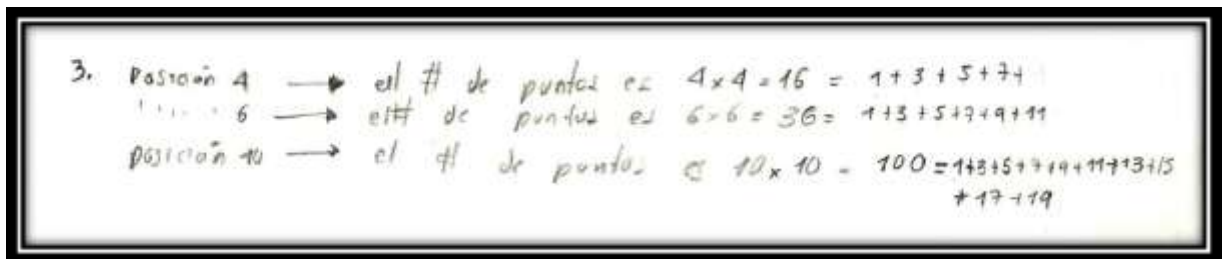 3. Posición 4 → el # de puntos es 4 x 4 = 16 = 1 + 3 + 5 + 7 +
" 6 → el # de puntos es 6 x 6 = 36 = 1+3+5+7+9+11
posición 10 → el # de puntos es 10 x 10 = 100 = 1+3+5+7+9+11+13+15
+ 17 + 19